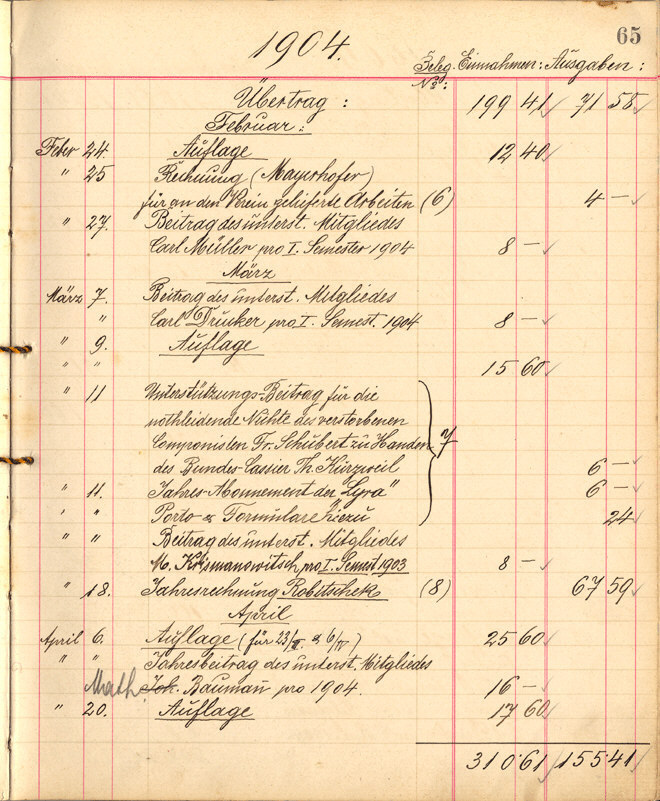 65
1904.
Beleg- Einnahmen: Ausgaben:
No:
Übertrag: 199 41 71 58
Februar:
Feber 24. Auflage 12 40
" 25 Rechnung (Mayerhofer)
für an den Verein gelieferte Arbeiten (6) 4 —
" 27. Beitrag des unterst. Mitgliedes
Carl Müller pro I. Semester 1904 8 —
März
März 7. Beitrag des unterst. Mitgliedes
" Carl Drucker pro I. Semest. 1904 8 —
" 9. Auflage
" " 15 60
" 11 Unterstützungs-Beitrag für die
nothleidende Nichte des verstorbenen
Componisten Fr. Schubert zu Handen 7
des Bundes-Cassier Th. Kurzweil 6 —
" 11. Jahres-Abonnement der "Lyra" 6 —
" " Porto & Formulare hiezu 24
" " Beitrag des unterst. Mitgliedes
M. Krismanowitsch pro I. Semest 1903 8 —
" 18. Jahresrechnung Robitschek (8) 67 59
April
April 6. Auflage (für 23/III. & 6/IV) 25 60
" " Jahresbeitrag des unterst. Mitgliedes
Math. Joh. Baumañ pro 1904. 16 —
" 20. Auflage 17 60
310·61 155·41